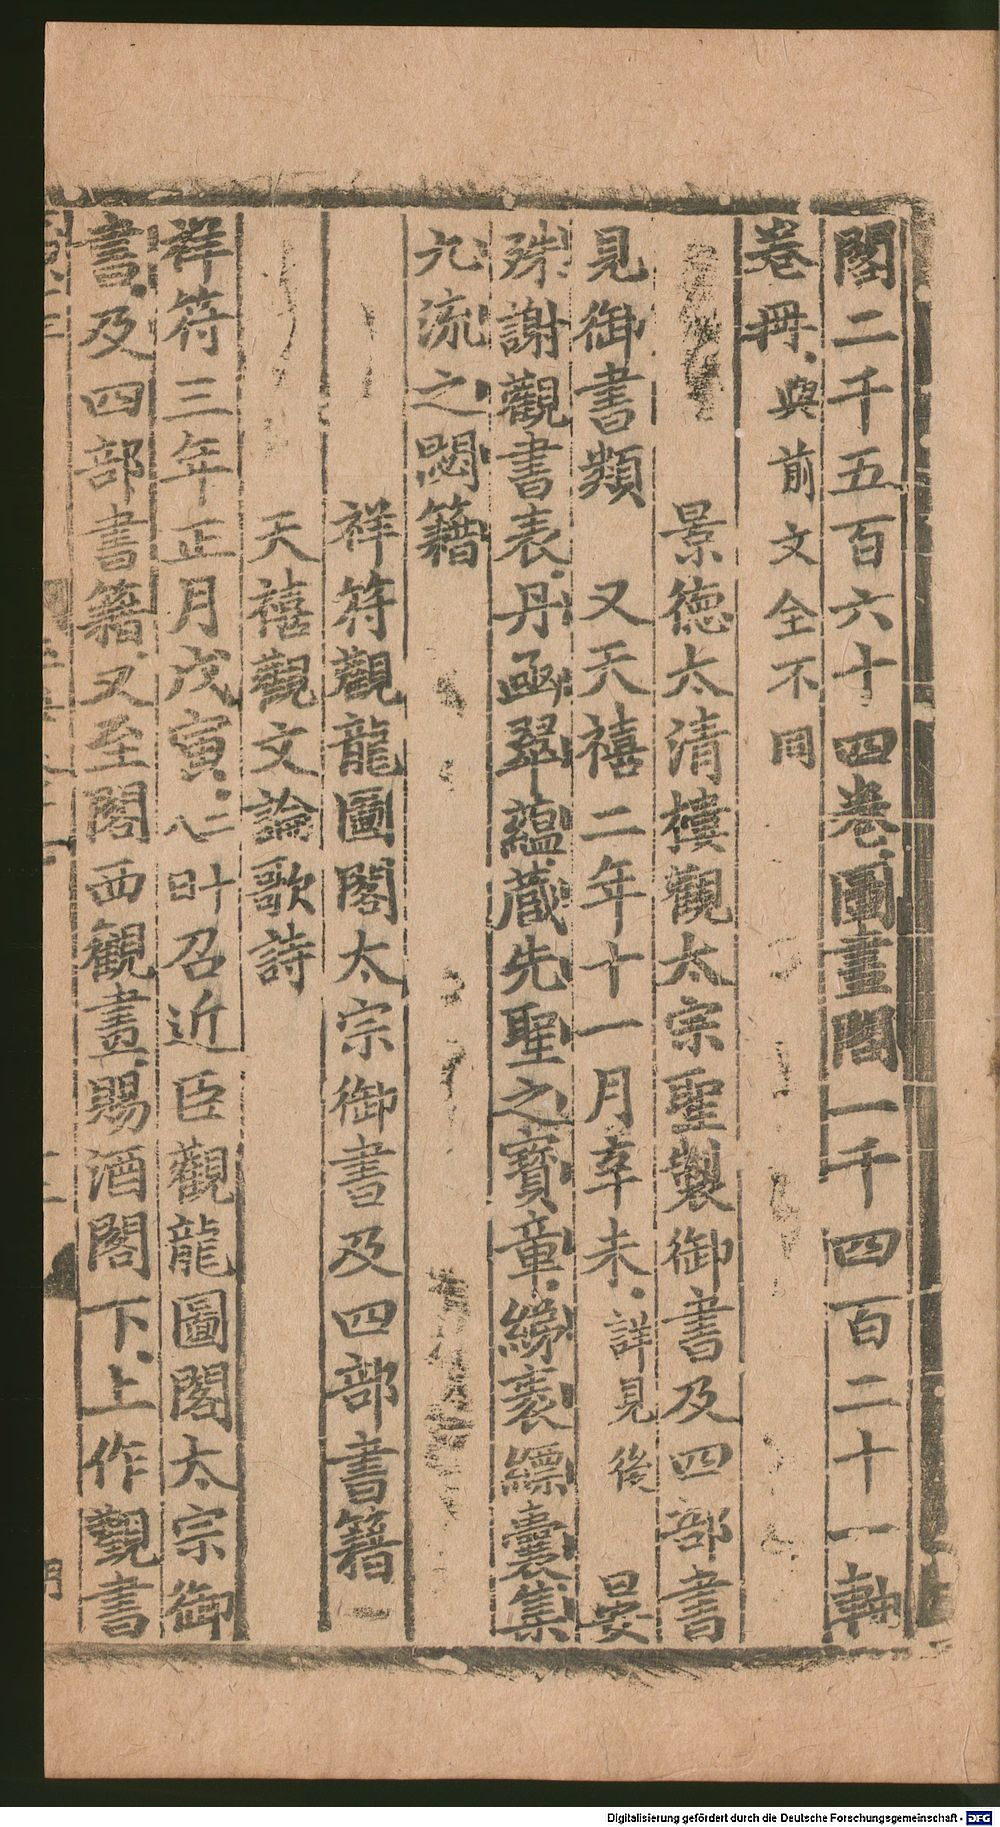 閣二千五百六十四卷圖畫閣一千四百二十一軸
卷冊與前文全不同
景徳太清樓觀太宗聖製御書及四部書
見御書類　又天禧二年十一月辛未詳見後　晏
殊謝觀書表丹凾翠蘊蔵先聖之寳章綈袠縹囊集
九流之閟籍
祥符觀龍圖閣太宗御書及四部書籍
天禧觀文論歌詩
祥符三年正月戊寅八二叶召近臣觀龍圖閣太宗御
書及四部書籍又至閣西觀畫賜酒閣下上作觀書
Digitalisierung gefördert durch die Deutsche Forschungsgemeinschaft - DFG